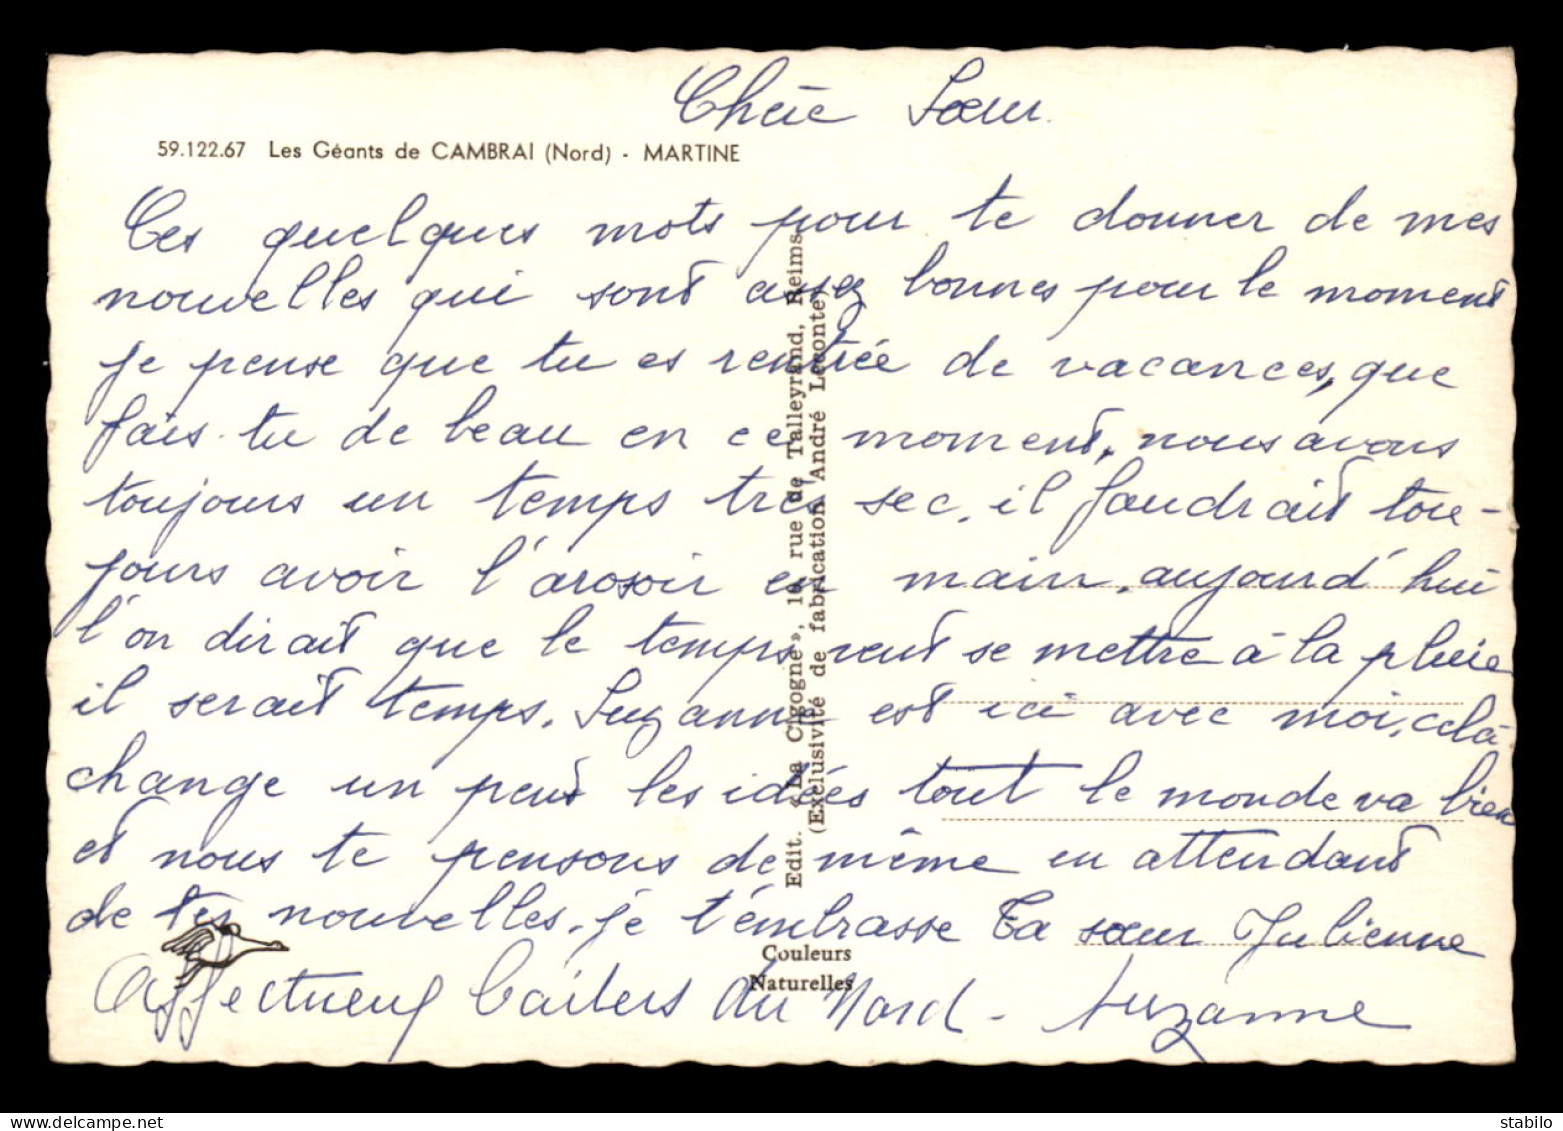 Chère Sœur.
59.122.67 Les Géants de CAMBRAI (Nord) - MARTINE
Ces quelques mots pour te donner de mes
nouvelles qui sont assez bonnes pour le moment
je pense que tu es rentrée de vacances, que
fais-tu de beau en ce moment, nous avons
toujours un temps très sec, il faudrait tou-
jours avoir l'arosoir en main, aujourd'hui
l'on dirait que le temps veut se mettre à la pluie
il serait temps. Suzanne est ici avec moi, celà
change un peut les idées tout le monde va bien
et nous te pensons de même en attendant
de tes nouvelles, je t'embrasse Ta sœur Julienne
Affectueux baisers du Nord - Suzanne
Edit. « La Cigogne », 10, rue de Talleyrand, Reims
(Exclusivité de fabrication André Leconte)
Couleurs
Naturelles
stabilo